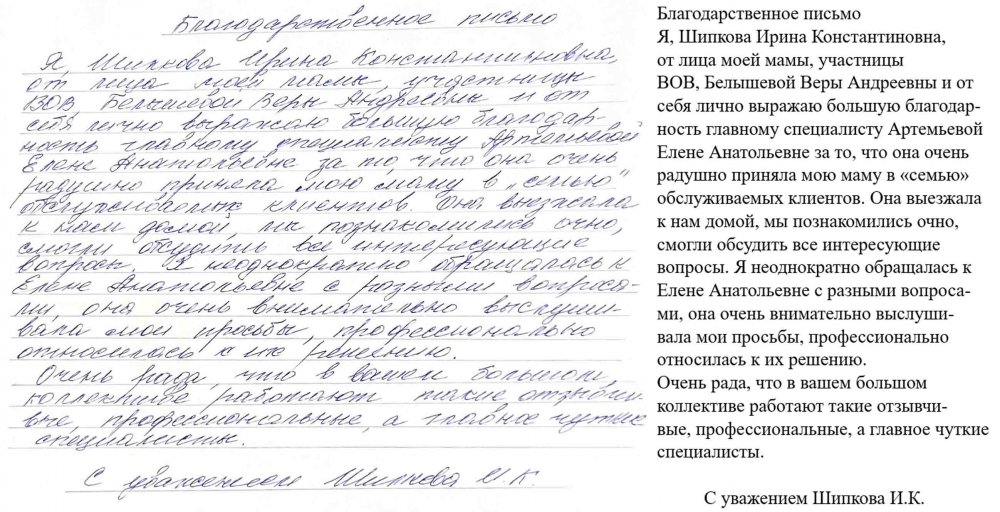 Благодарственное письмо
Я Шипкова Ирина Константиновна,
от лица моей мамы, участницы
ВОВ Белышевой Веры Андреевны и от
себя лично выражаю большую благодар-
ность главному специалисту Артемьевой
Елене Анатольевне за то, что она очень
радушно приняла мою маму в „семью"
обслуживаемых клиентов. Она выезжала
к нам домой, мы познакомились очно,
смогли обсудить все интересующие
вопросы. Я неоднократно обращалась к
Елене Анатольевне с разными вопроса-
ми, она очень внимательно выслуши-
вала мои просьбы, профессионально
относилась к их решению.
Очень рада, что в вашем большом
коллективе работают такие отзывчи-
вые, профессиональные, а главное чуткие
специалисты.
С уважением Шипкова И.К.
Благодарственное письмо
Я, Шипкова Ирина Константиновна,
от лица моей мамы, участницы
ВОВ, Белышевой Веры Андреевны и от
себя лично выражаю большую благодар-
ность главному специалисту Артемьевой
Елене Анатольевне за то, что она очень
радушно приняла мою маму в «семью»
обслуживаемых клиентов. Она выезжала
к нам домой, мы познакомились очно,
смогли обсудить все интересующие
вопросы. Я неоднократно обращалась к
Елене Анатольевне с разными вопроса-
ми, она очень внимательно выслуши-
вала мои просьбы, профессионально
относилась к их решению.
Очень рада, что в вашем большом
коллективе работают такие отзывчи-
вые, профессиональные, а главное чуткие
специалисты.
С уважением Шипкова И.К.